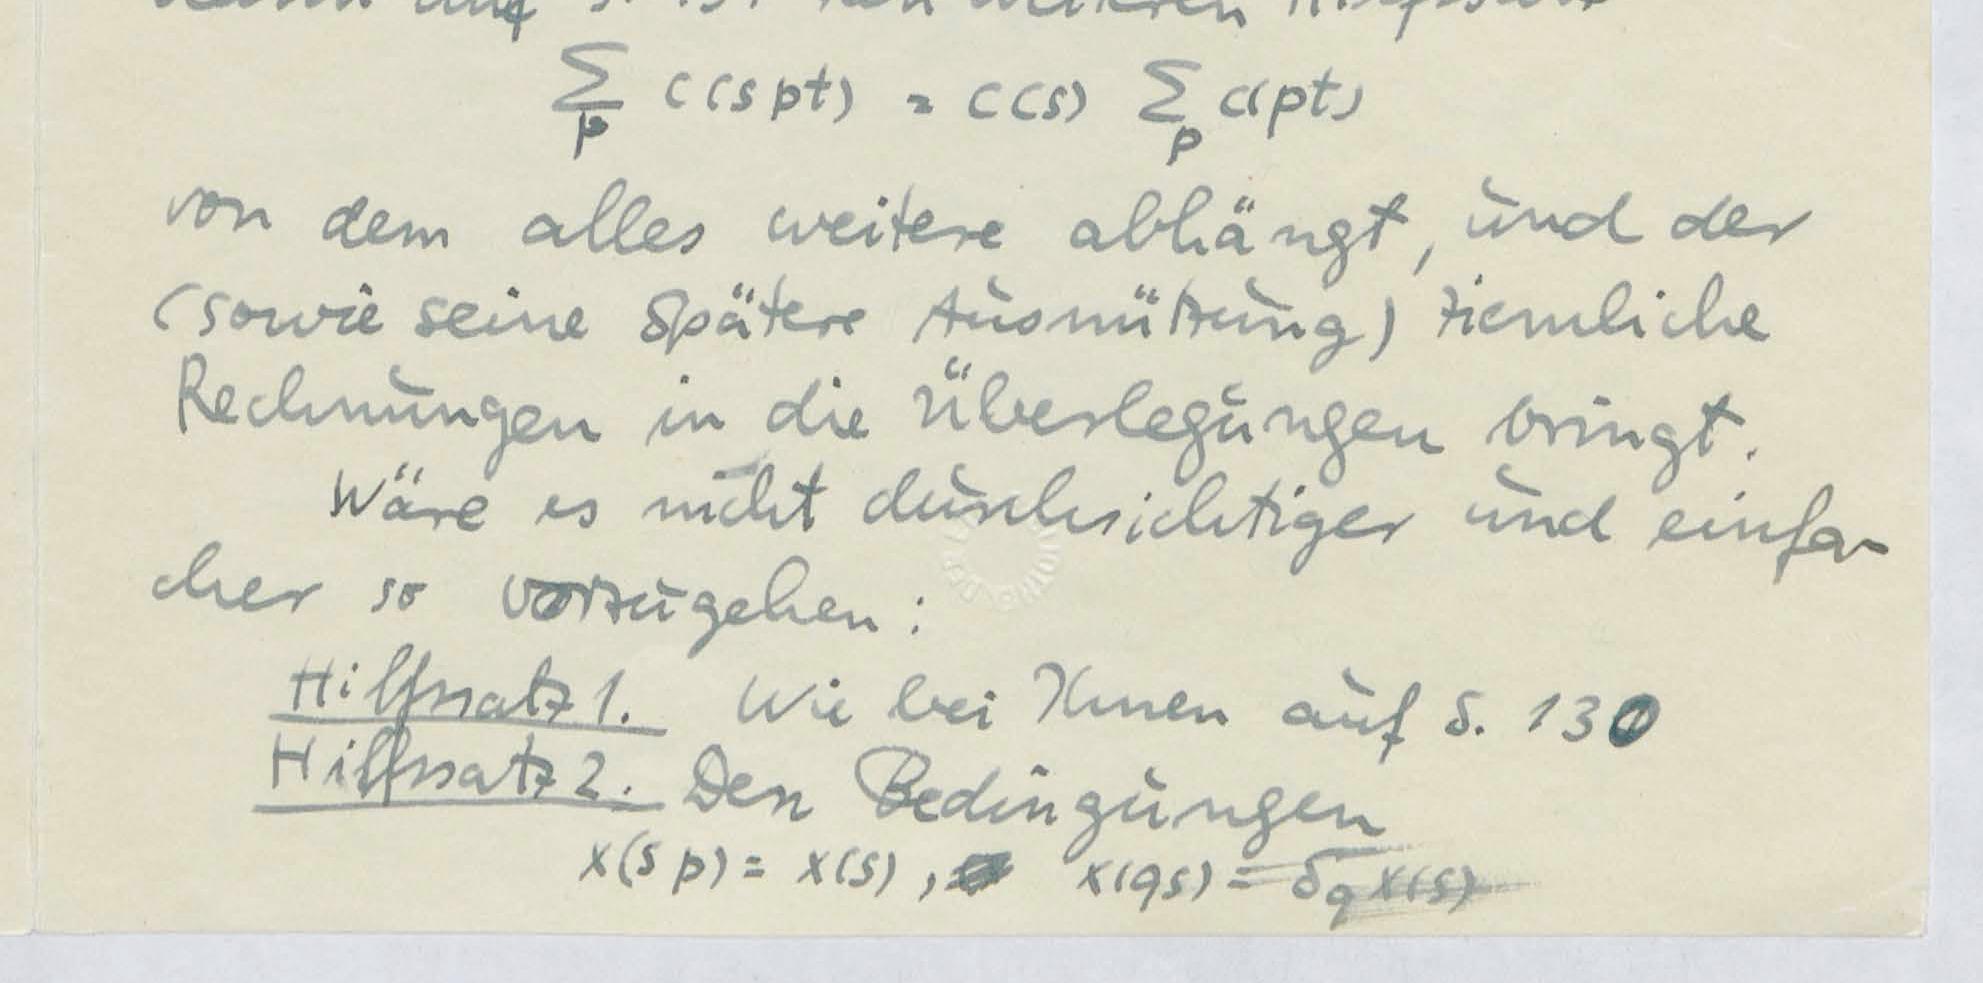 auf S. 131 den weiteren Hilfssatz
∑_p c(spt) = c(s) ∑_p c(pt)
von dem alles weitere abhängt, und der
(sowie seine spätere Ausnützung) ziemliche
Rechnungen in die Überlegungen bringt.
Wäre es nicht durchsichtiger und einfa-
cher so vorzugehen:
Hilfssatz 1. Wie bei Ihnen auf S. 130
Hilfssatz 2. Den Bedingungen
x(sp) = x(s), x(qs) = δ_q x(s)